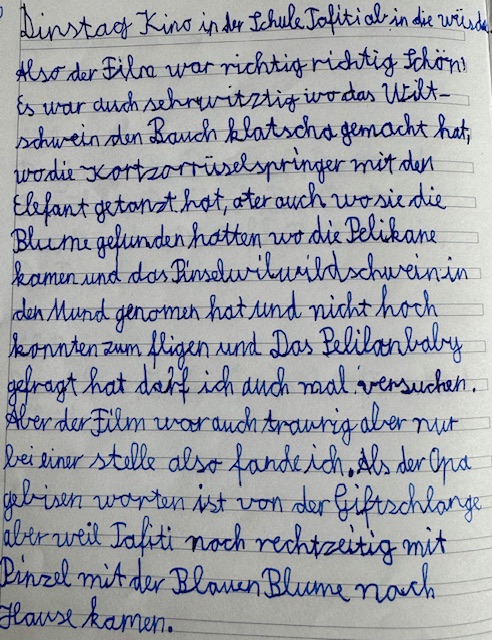 Dinstag Kino in der Schule Tafiti ab in die wüsde.
Also der Film war richtig richtig Schön!
Es war auch sehr witztig wo das Wilt-
schwein den Bauch klatscha gemacht hat,
wo die Kortzorrüselspringer mit den
Elefant getanzt hat, ater auch wo sie die
Blume gefunden hatten wo die Pelikane
kamen und das Pinselwilwildschwein in
den Mund genomen hat und nicht hoch
konnten zum fligen und Das Pelikanbaby
gefragt hat darf ich auch mal versuchen.
Aber der Film war auch traurig aber nur
bei einer stelle also fande ich. Als der Opa
gebisen worten ist von der Giftschlange
aber weil Tafiti noch rechtzeitig mit
Pinzel mit der Blauen Blume nach
Hause kamen.